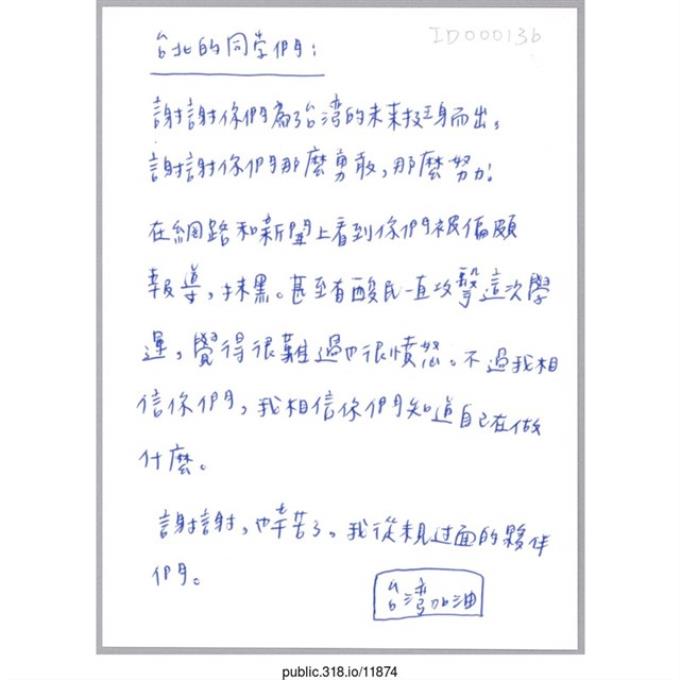 ID000136
台北的同学們:
謝謝你們為了台湾的未来挺身而出,
謝謝你們那麼勇敢,那麼努力!
在網路和新聞上看到你們被偏頗
報導,抹黑。甚至有酸民一直攻擊這次學
運,覺得很難過也很憤怒。不過我相
信你們,我相信你們知道自己在做
什麼。
謝謝,也辛苦了。我從未見过面的夥伴
們。
台湾加油
public.318.io/11874